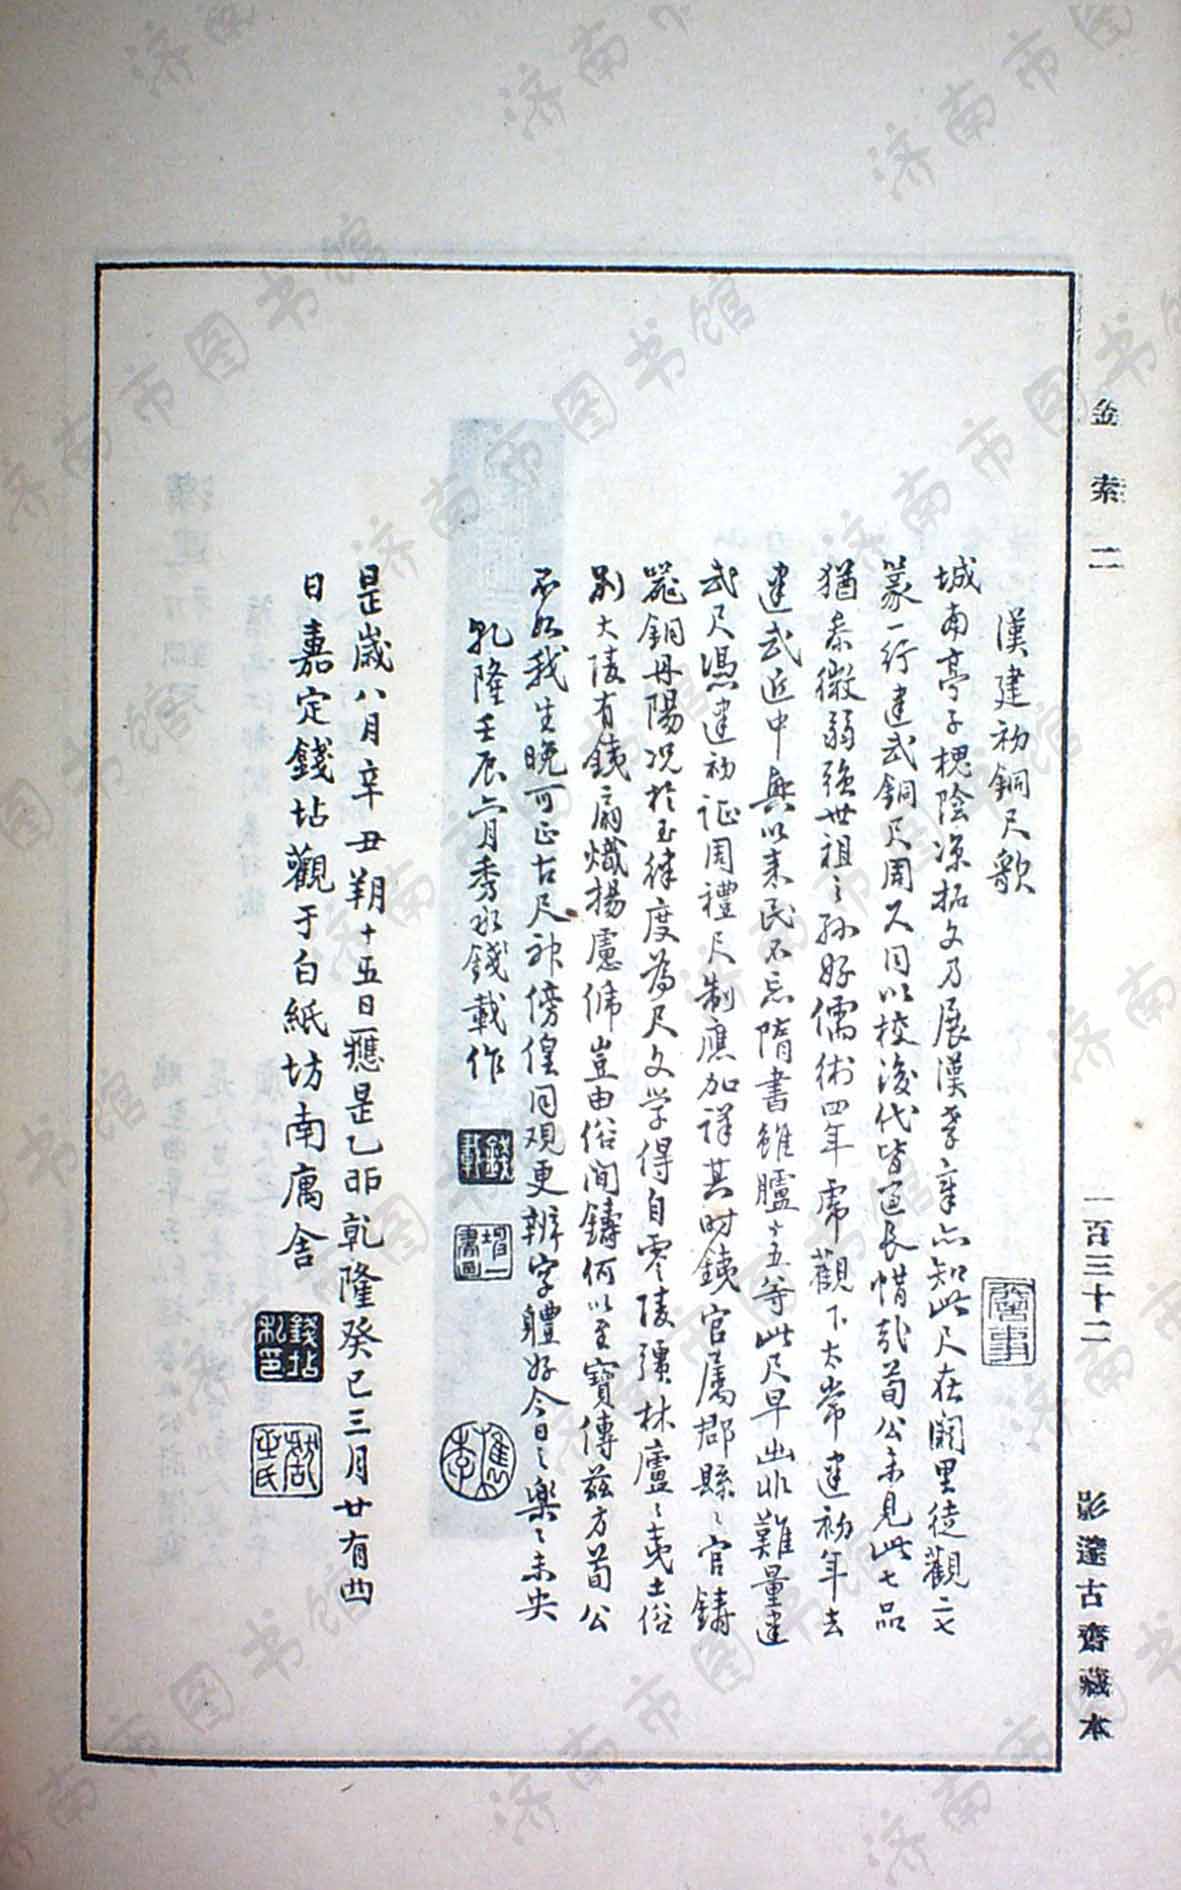 金索二
一百三十二
影邃古齋藏本
漢建初銅尺歌
城南亭子槐陰涼拓文乃展漢孝章亦知此尺在闕里徒觀二七
篆一行建武銅尺周尺同以校後代皆逾長惜哉荀公未見此七品
猶泰微弱強世祖之孫好儒術四年虎觀下太常建初年去
建武近中興以來民不忘隋書雖臚十五等此尺早出非難量建
武尺憑建初証周禮尺制應加詳其時鐵官屬郡縣縣官鑄
器銅丹陽況於玉律度為尺文學得自零陵彊林廬之夷土俗
別大陵有鐵扇熾揚慮俿豈由俗間鑄何以至寶傳茲方荀公
不如我生晚可正古尺神傍偟同观更辨字體好今日之樂樂未央
乾隆壬辰六月秀水錢載作
是歲八月辛丑朔十五日應是乙卯乾隆癸巳三月廿有四
日嘉定錢坫觀于白紙坊南寓舍
錢載
錢坫私印